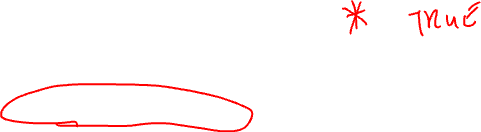 * TRUE